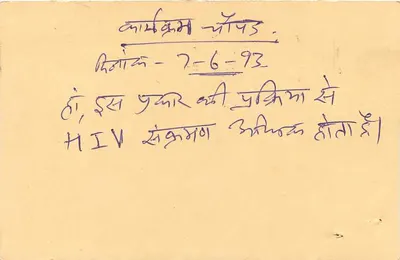 कार्यक्रम - चौपड़.
दिनांक - 7-6-93
हां, इस प्रकार की प्रक्रिया से
HIV संक्रमण अधिक होता है।